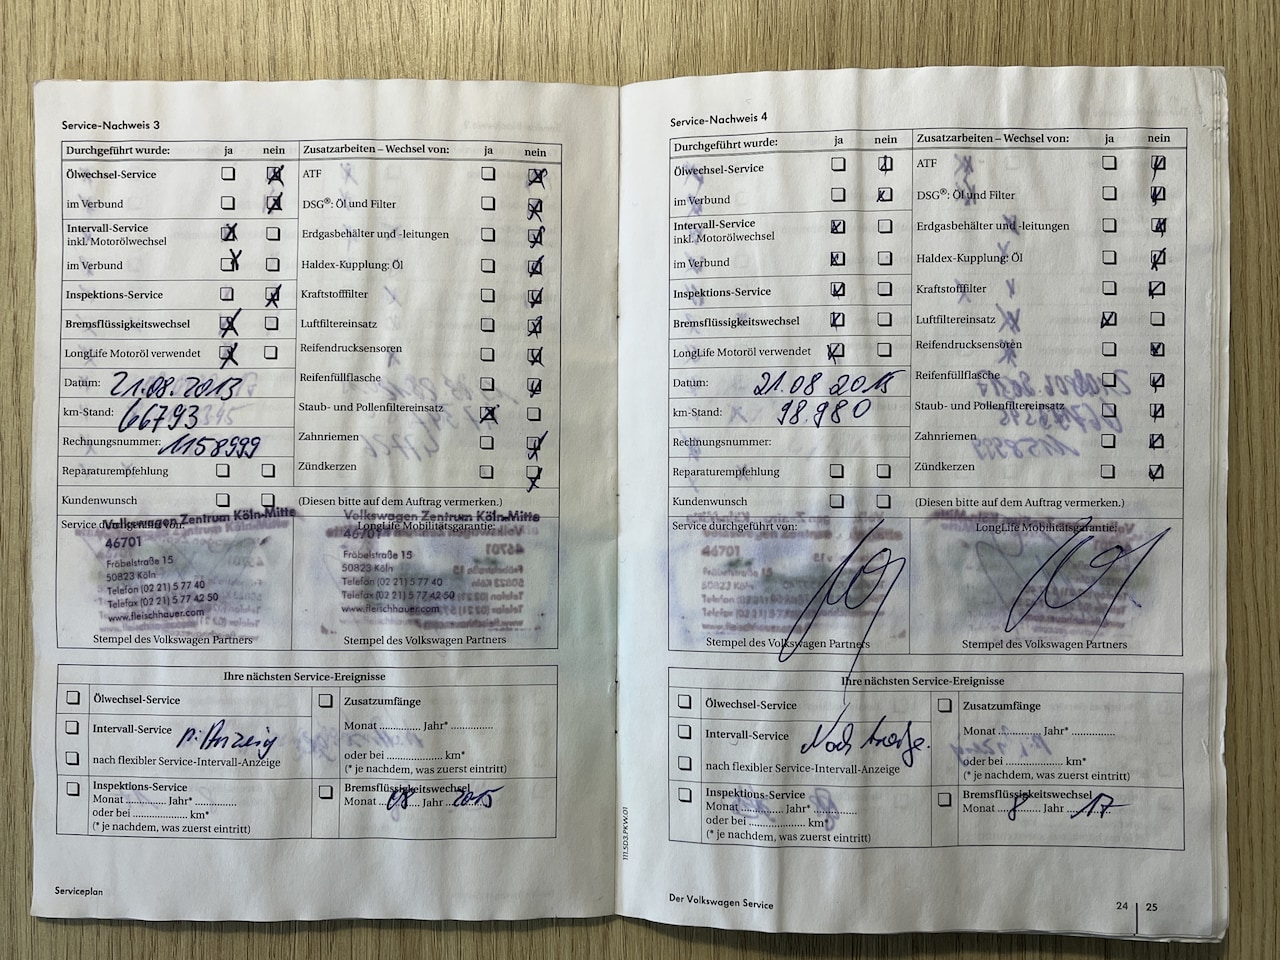 Service-Nachweis 3
Durchgeführt wurde: ja nein Zusatzarbeiten – Wechsel von: ja nein
Ölwechsel-Service ATF
im Verbund DSG®: Öl und Filter
Intervall-Service Erdgasbehälter und -leitungen
inkl. Motorölwechsel
im Verbund Haldex-Kupplung: Öl
Inspektions-Service Kraftstofffilter
Bremsflüssigkeitswechsel Luftfiltereinsatz
LongLife Motoröl verwendet Reifendrucksensoren
Datum: 21.08.2013 Reifenfüllflasche
km-Stand: 66793 Staub- und Pollenfiltereinsatz
Rechnungsnummer: 1158999 Zahnriemen
Reparaturempfehlung Zündkerzen
Kundenwunsch (Diesen bitte auf dem Auftrag vermerken.)
Service durchgeführt von: LongLife Mobilitätsgarantie:
Volkswagen Zentrum Köln-Mitte Volkswagen Zentrum Köln-Mitte
46701 46701
Fröbelstraße 15 Fröbelstraße 15
50823 Köln 50823 Köln
Telefon (02 21) 5 77 40 Telefon (02 21) 5 77 40
Telefax (02 21) 5 77 42 50 Telefax (02 21) 5 77 42 50
www.fleischhauer.com www.fleischhauer.com
Stempel des Volkswagen Partners Stempel des Volkswagen Partners
Ihre nächsten Service-Ereignisse
Ölwechsel-Service Zusatzumfänge
Intervall-Service Monat .............. Jahr* ..............
nach flexibler Service-Intervall-Anzeige oder bei .................. km*
(* je nachdem, was zuerst eintritt)
Inspektions-Service Bremsflüssigkeitswechsel
Monat ............. Jahr* ............. Monat 08 Jahr 2015
oder bei ..................... km*
(* je nachdem, was zuerst eintritt)
Serviceplan
Service-Nachweis 4
Durchgeführt wurde: ja nein Zusatzarbeiten – Wechsel von: ja nein
Ölwechsel-Service ATF
im Verbund DSG®: Öl und Filter
Intervall-Service Erdgasbehälter und -leitungen
inkl. Motorölwechsel
im Verbund Haldex-Kupplung: Öl
Inspektions-Service Kraftstofffilter
Bremsflüssigkeitswechsel Luftfiltereinsatz
LongLife Motoröl verwendet Reifendrucksensoren
Datum: 21.08 2015 Reifenfüllflasche
km-Stand: 98.980 Staub- und Pollenfiltereinsatz
Rechnungsnummer: Zahnriemen
Reparaturempfehlung Zündkerzen
Kundenwunsch (Diesen bitte auf dem Auftrag vermerken.)
Service durchgeführt von: LongLife Mobilitätsgarantie:
46701
Stempel des Volkswagen Partners Stempel des Volkswagen Partners
Ihre nächsten Service-Ereignisse
Ölwechsel-Service Zusatzumfänge
Intervall-Service Nach Monat .............. Jahr* ..............
nach flexibler Service-Intervall-Anzeige oder bei .................. km*
(* je nachdem, was zuerst eintritt)
Inspektions-Service Bremsflüssigkeitswechsel
Monat ............. Jahr* ............. Monat 8 Jahr 17
oder bei ..................... km*
(* je nachdem, was zuerst eintritt)
111.5D3.PKW.01
Der Volkswagen Service 24 25